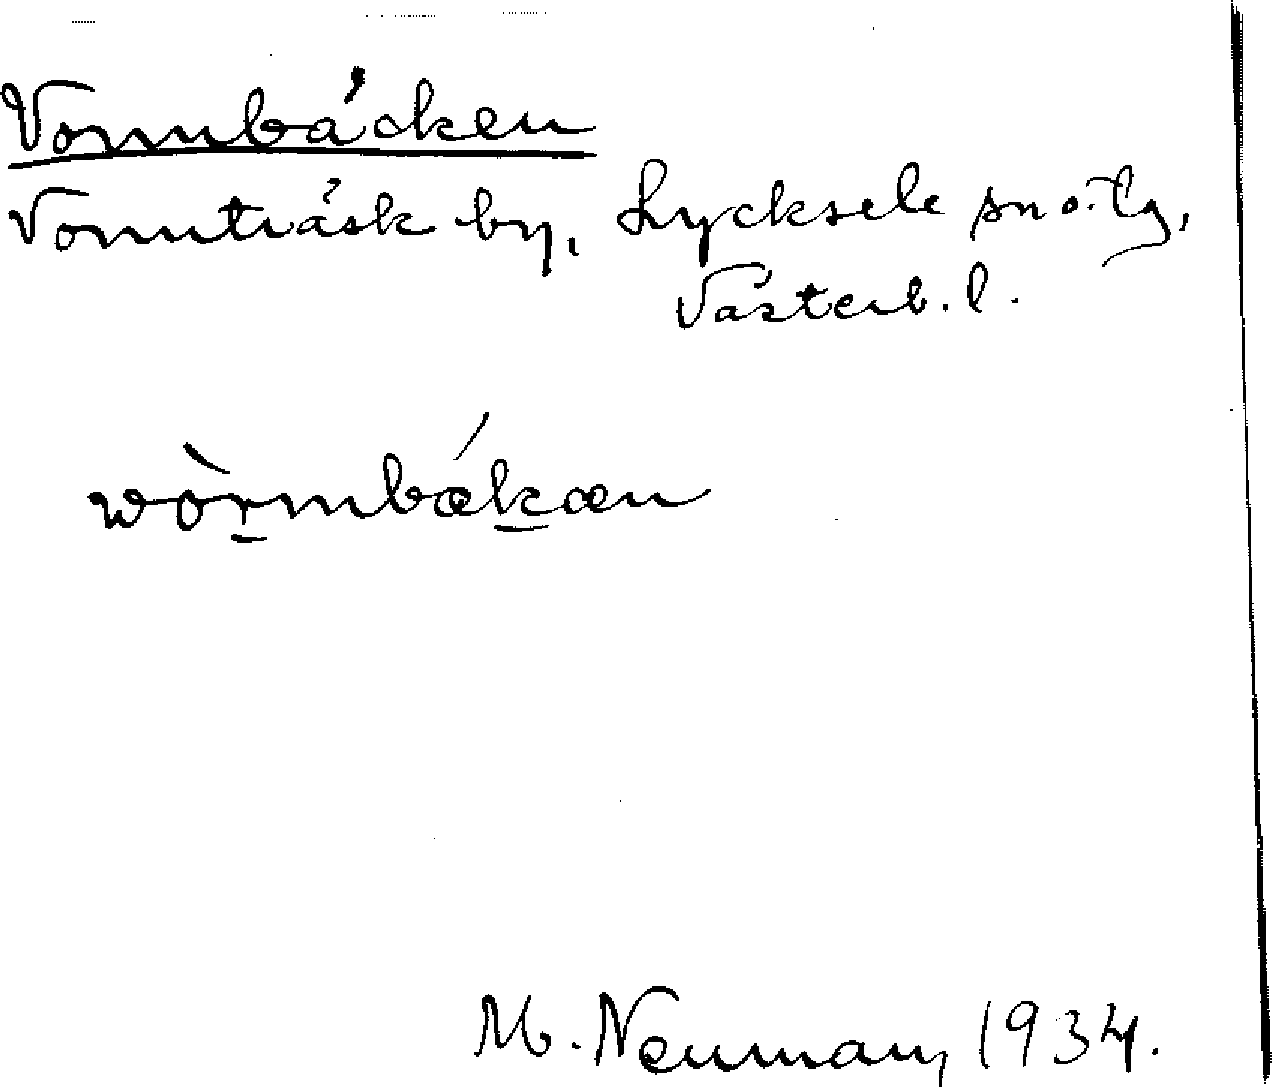 Vormbäcken
Vormträsk by, Lycksele sn o. lg,
Västerb. l.
wòrmbǽkæn
M. Neuman, 1934.